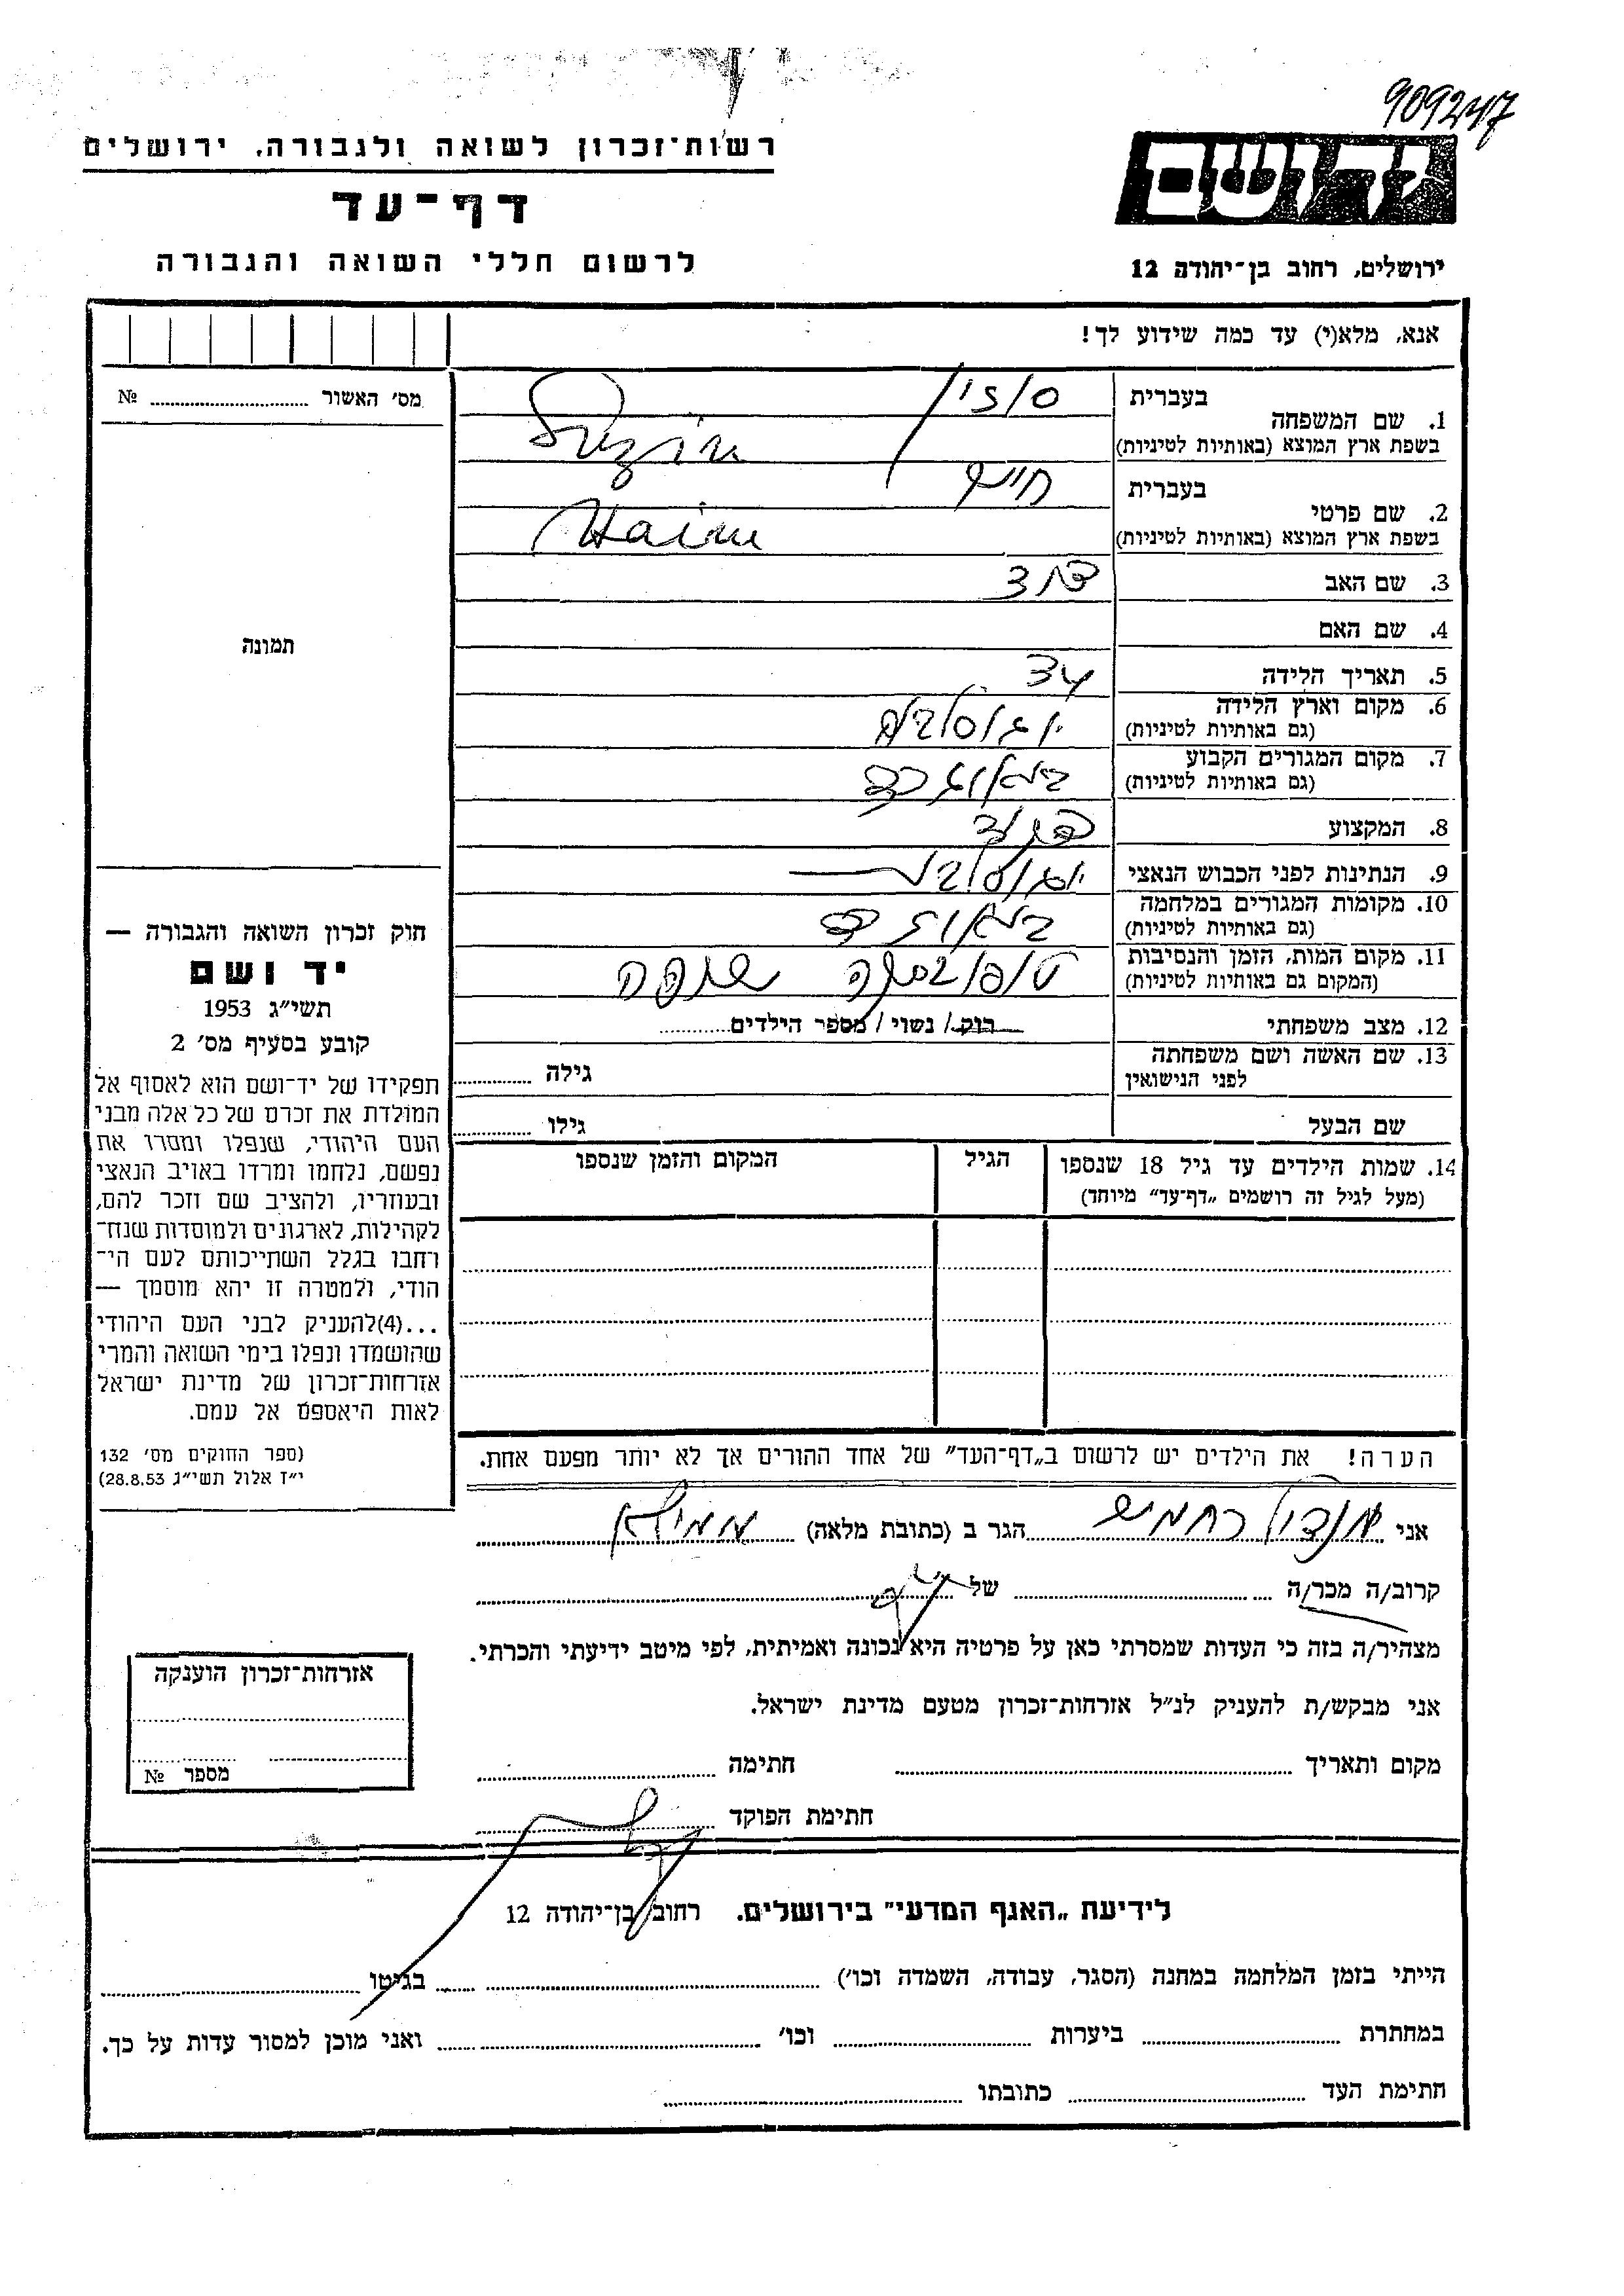 909247
רשות־זכרון לשואה ולגבורה, ירושלים
דף־עד
לרשום חללי השואה והגבורה
יד ושם
ירושלים, רחוב בן־יהודה 12
אנא, מלא(י) עד כמה שידוע לך!
מס׳ האשור № 
1. שם המשפחה
בעברית
בשפת ארץ המוצא (באותיות לטיניות)
2. שם פרטי
בעברית חיים
בשפת ארץ המוצא (באותיות לטיניות) Haim
3. שם האב דוד
4. שם האם
5. תאריך הלידה
6. מקום וארץ הלידה
(גם באותיות לטיניות)
7. מקום המגורים הקבוע
(גם באותיות לטיניות)
8. המקצוע פקיד
9. הנתינות לפני הכבוש הנאצי
10. מקומות המגורים במלחמה
(גם באותיות לטיניות)
11. מקום המות, הזמן והנסיבות
(המקום גם באותיות לטיניות)
12. מצב משפחתי רוק / נשוי / מספר הילדים
13. שם האשה ושם משפחתה
לפני הנישואין
גילה
שם הבעל גילו
14. שמות הילדים עד גיל 18 שנספו
(מעל לגיל זה רושמים „דף־עד״ מיוחד)
הגיל
המקום והזמן שנספו
תמונה
חוק זכרון השואה והגבורה —
יד ושם
תשי״ג 1953
קובע בסעיף מס׳ 2
תפקידו של יד־ושם הוא לאסוף אל
המולדת את זכרם של כל אלה מבני
העם היהודי, שנפלו ומסרו את
נפשם, נלחמו ומרדו באויב הנאצי
ובעוזריו, ולהציב שם וזכר להם,
לקהילות, לארגונים ולמוסדות שנח־
רחבו בגלל השתייכותם לעם הי־
הודי, ולמטרה זו יהא מוסמך —
...(4)להעניק לבני העם היהודי
שהושמדו ונפלו בימי השואה והמרי
אזרחות־זכרון של מדינת ישראל
לאות היאספם אל עמם.
(ספר החוקים מס׳ 132
י״ז אלול תשי״ג 28.8.53)
הערה! את הילדים יש לרשום ב„דף־העד״ של אחד ההורים אך לא יותר מפעם אחת.
אני הגר ב (כתובת מלאה)
קרוב/ה מכר/ה של
מצהיר/ה בזה כי העדות שמסרתי כאן על פרטיה היא נכונה ואמיתית, לפי מיטב ידיעתי והכרתי.
אני מבקש/ת להעניק לנ״ל אזרחות־זכרון מטעם מדינת ישראל.
מקום ותאריך חתימה
חתימת הפוקד
אזרחות־זכרון הוענקה
מספר №
לידיעת „האגף המדעי״ בירושלים. רחוב בן־יהודה 12
הייתי בזמן המלחמה במחנה (הסגר, עבודה, השמדה וכו׳) בגיטו
במחתרת ביערות וכו׳ ואני מוכן למסור עדות על כך.
חתימת העד כתובתו